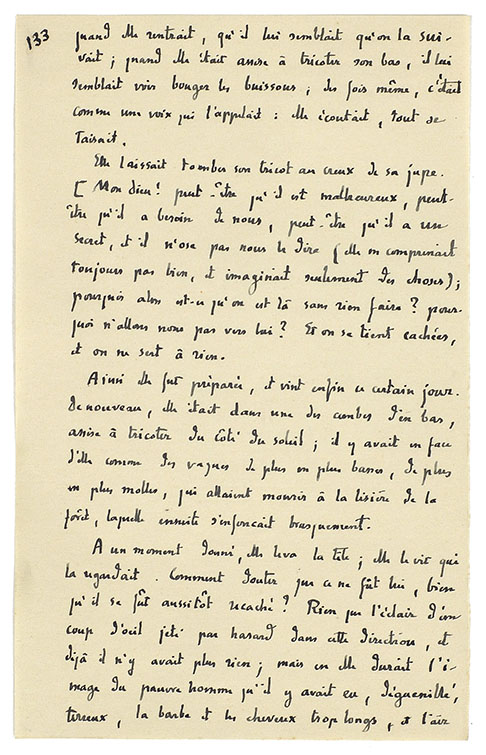 133
quand elle rentrait, qu'il lui semblait qu'on la sui-
vait ; quand elle était assise à tricoter son bas, il lui
semblait voir bouger les buissons ; des fois même, c'était
comme une voix qui l'appelait : elle écoutait, tout se
taisait.
Elle laissait tomber son tricot au creux de sa jupe.
[ Mon dieu ! peut-être qu'il est malheureux, peut-
être qu'il a besoin de nous, peut-être qu'il a un
secret, et il n'ose pas nous le dire (elle ne comprenait
toujours pas bien, et imaginait seulement des choses) ;
pourquoi alors est-ce qu'on est là sans rien faire ? pour-
quoi n'allons nous pas vers lui ? Et on se tient cachées,
et on ne sert à rien.
Ainsi elle fut préparée, et vint enfin ce certain jour.
De nouveau, elle était dans une des combes d'en bas,
assise à tricoter du côté du soleil ; il y avait en face
d'elle comme des vagues de plus en plus basses, de plus
en plus molles, qui allaient mourir à la lisière de la
forêt, laquelle ensuite s'enfonçait brusquement.
A un moment donné, elle leva la tête ; elle le vit qui
la regardait. Comment douter que ce ne fût lui, bien
qu'il se fût aussitôt recaché ? Rien que l'éclair d'un
coup d'oeil jeté par hasard dans cette direction, et
déjà il n'y avait plus rien ; mais en elle durait l'i-
mage du pauvre homme qu'il y avait eu, déguenillé,
terreux, la barbe et les cheveux trop longs, et l'air